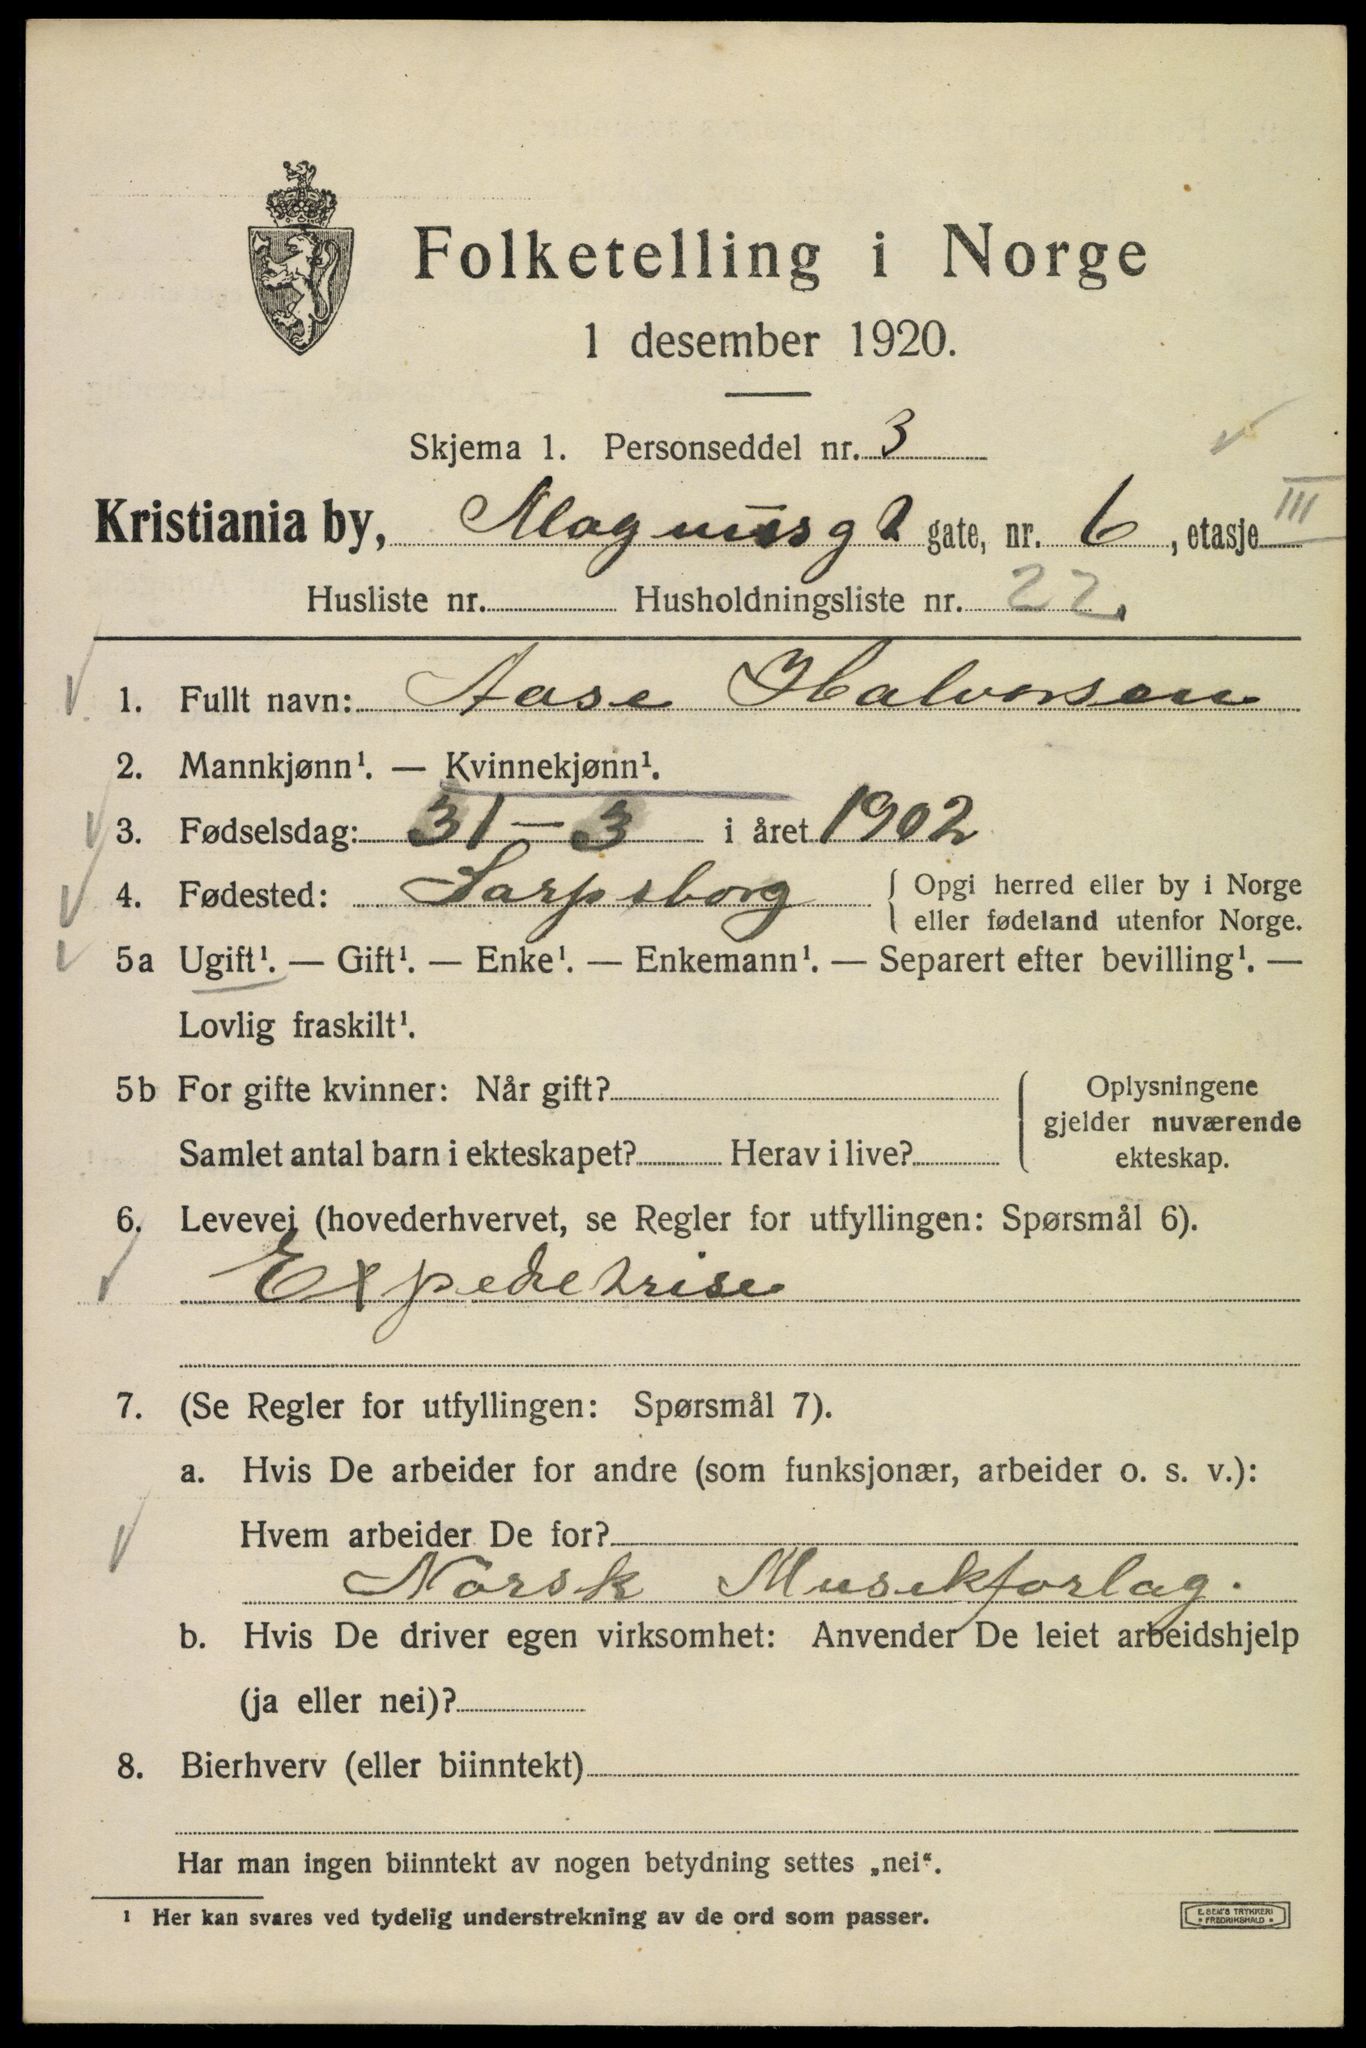 Folketelling i Norge
1 desember 1920.
Skjema 1. Personseddel nr. 3
Kristiania by, Magnusgt gate, nr. 6, etasje III
Husliste nr. Husholdningsliste nr. 22.
1. Fullt navn: Aase Halvorsen
2. Mannkjønn¹. — Kvinnekjønn¹.
3. Fødselsdag: 31 — 3 i året 1902
4. Fødested: Sarpsborg { Opgi herred eller by i Norge
eller fødeland utenfor Norge.
5a Ugift¹. — Gift¹. — Enke¹. — Enkemann¹. — Separert efter bevilling¹. —
Lovlig fraskilt¹.
5b For gifte kvinner: Når gift?
Samlet antal barn i ekteskapet? Herav i live?
Oplysningene
gjelder nuværende
ekteskap.
6. Levevei (hovederhvervet, se Regler for utfyllingen: Spørsmål 6).
Expedetrise
7. (Se Regler for utfyllingen: Spørsmål 7).
a. Hvis De arbeider for andre (som funksjonær, arbeider o. s. v.):
Hvem arbeider De for?
Norsk Musikforlag.
b. Hvis De driver egen virksomhet: Anvender De leiet arbeidshjelp
(ja eller nei)?
8. Bierhverv (eller biinntekt)
Har man ingen biinntekt av nogen betydning settes „nei“.
¹ Her kan svares ved tydelig understrekning av de ord som passer.
E. SEM'S TRYKKERI
FREDRIKSHALD